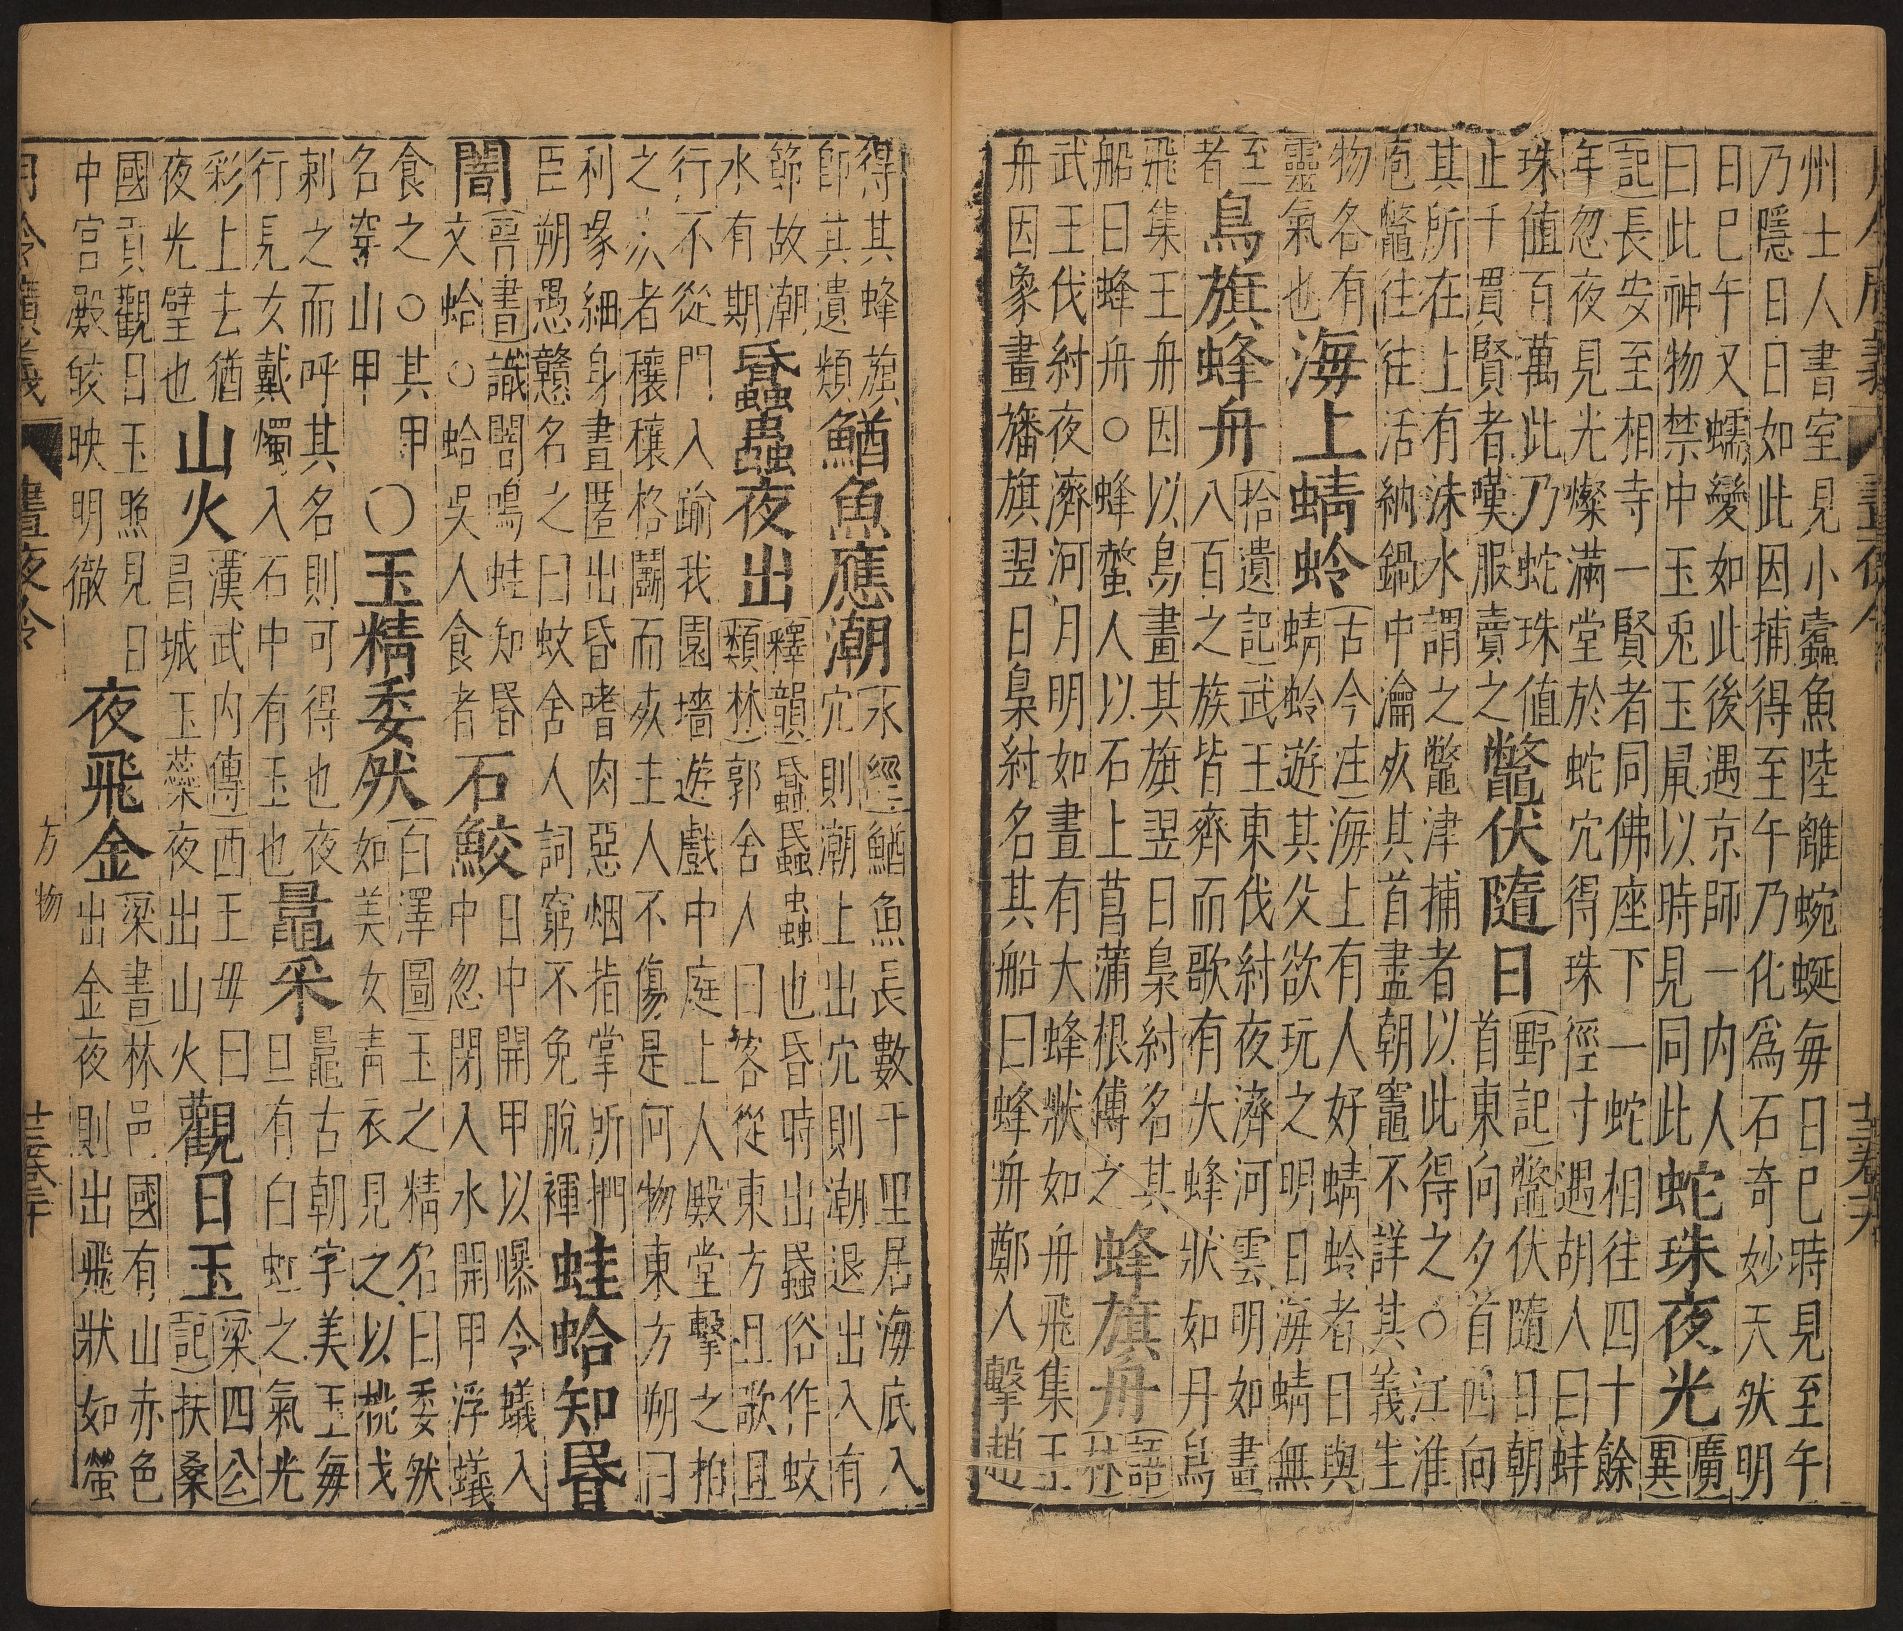 州士人書室見小蠹魚陸離蜿蜒每日巳時見至午
乃隱日日如此因捕得至午乃化爲石奇妙天然明
日巳午又蠕變如此後遇京師一内人
曰此神物禁中玉兎玉鼠以時見同此
蛇珠夜光
廣
異
記長安至相寺一賢者同佛座下一蛇相往四十餘
年忽夜見光燦滿堂於蛇穴得珠徑寸遇胡人曰蚌
珠值百萬此乃蛇珠值
止千貫賢者嘆服賣之
鼈伏隨日
野記鼈伏隨日朝
首東向夕首西向
其所在上有沫水謂之鼈津捕者以此得之○江淮
庖鼈往往活納鍋中瀹其首盡朝竈不詳其義生
物各有
靈氣也
海上蜻蛉
古今注海上有人好蜻蛉者日與
蜻蛉遊其父欲玩之明日海蜻無
至
者
鳥旗蜂舟
拾遺記武王東伐紂夜濟河雲明如晝
八百之族皆齊而歌有大蜂狀如丹鳥
飛集王舟因以鳥畫其旗翌日梟紂名其
船曰蜂舟○蜂螫人以石上菖蒲根傅之
蜂旗舟
語
林
武王伐紂夜濟河月明如晝有大蜂狀如舟飛集王
舟因象畫旛旗翌日梟紂名其船曰蜂舟鄭人擊趙
得其蜂旗
師其遺類
鰌魚應潮
水經鰌魚長數千里居海底入
穴則潮上出穴則潮退出入有
節故潮
水有期
蟁蝱夜出
釋韻蟁蟁蝱也昏時出蟁俗作蚊
類林郭舍人曰客從東方且歌且
行不從門入踰我園墻遊戲中庭上人殿堂擊之拍
之者穰穰格鬭而死主人不傷是何物東方朔曰
利喙細身晝匿出昏嗜肉惡烟指掌所捫
臣朔愚戇名之曰蚊舍人詞窮不免脫褌
蛙蛤知昬
闇
晉書識闇鳴蛙知昬
文蛤○蛤吴人食者
石鮫
日中開甲以曝令蟻入
中忽閉入水開甲浮蟻
食之○其甲
名穿山甲
○玉精委然
白澤圖玉之精名曰委然
如美女青衣見之以桃戈
刺之而呼其名則可得也夜
行見女戴燭入石中有玉也
鼂采
鼂古朝字美玉每
旦有白虹之氣光
彩上去猶
夜光璧也
山火
漢武内傳西王毋曰
昌城玉蘂夜出山火
觀日玉
梁四公
記扶桑
國貢觀日玉照見日
中宫殿皎映明徹
夜飛金
梁書林邑國有山赤色
出金夜則出飛狀如螢
月令廣義
晝夜令
方物